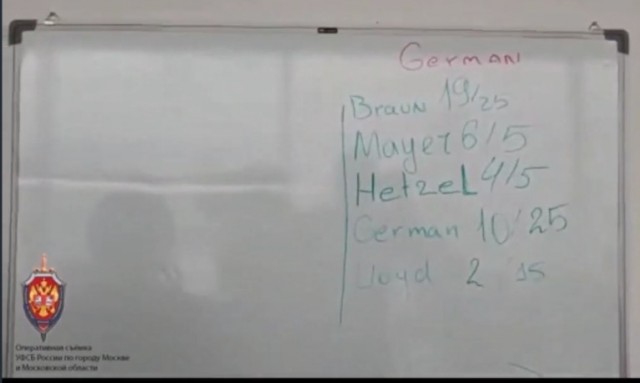 German
Braun 19/25
Mayer 6/5
Hetzel 4/5
German 10/25
Lloyd 2/15
Оперативная съёмка
УФСБ России по городу Москве
и Московской области